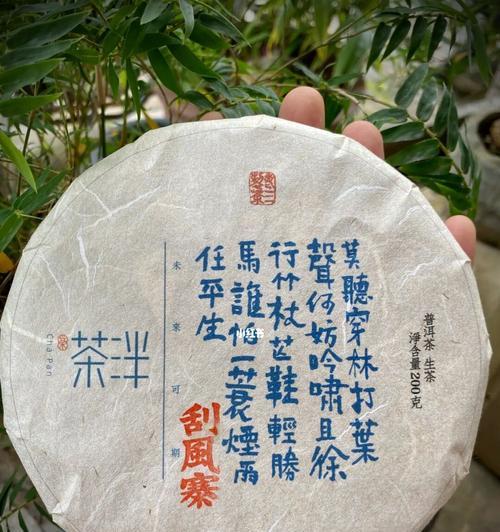 普洱茶 生茶
淨含量200克
莫聽穿林打葉
聲何妨吟嘯且徐
行竹杖芒鞋輕勝
馬誰怕一蓑煙雨
任平生
刮風寨
未來可期
茶泮
Cha Pan
小红书